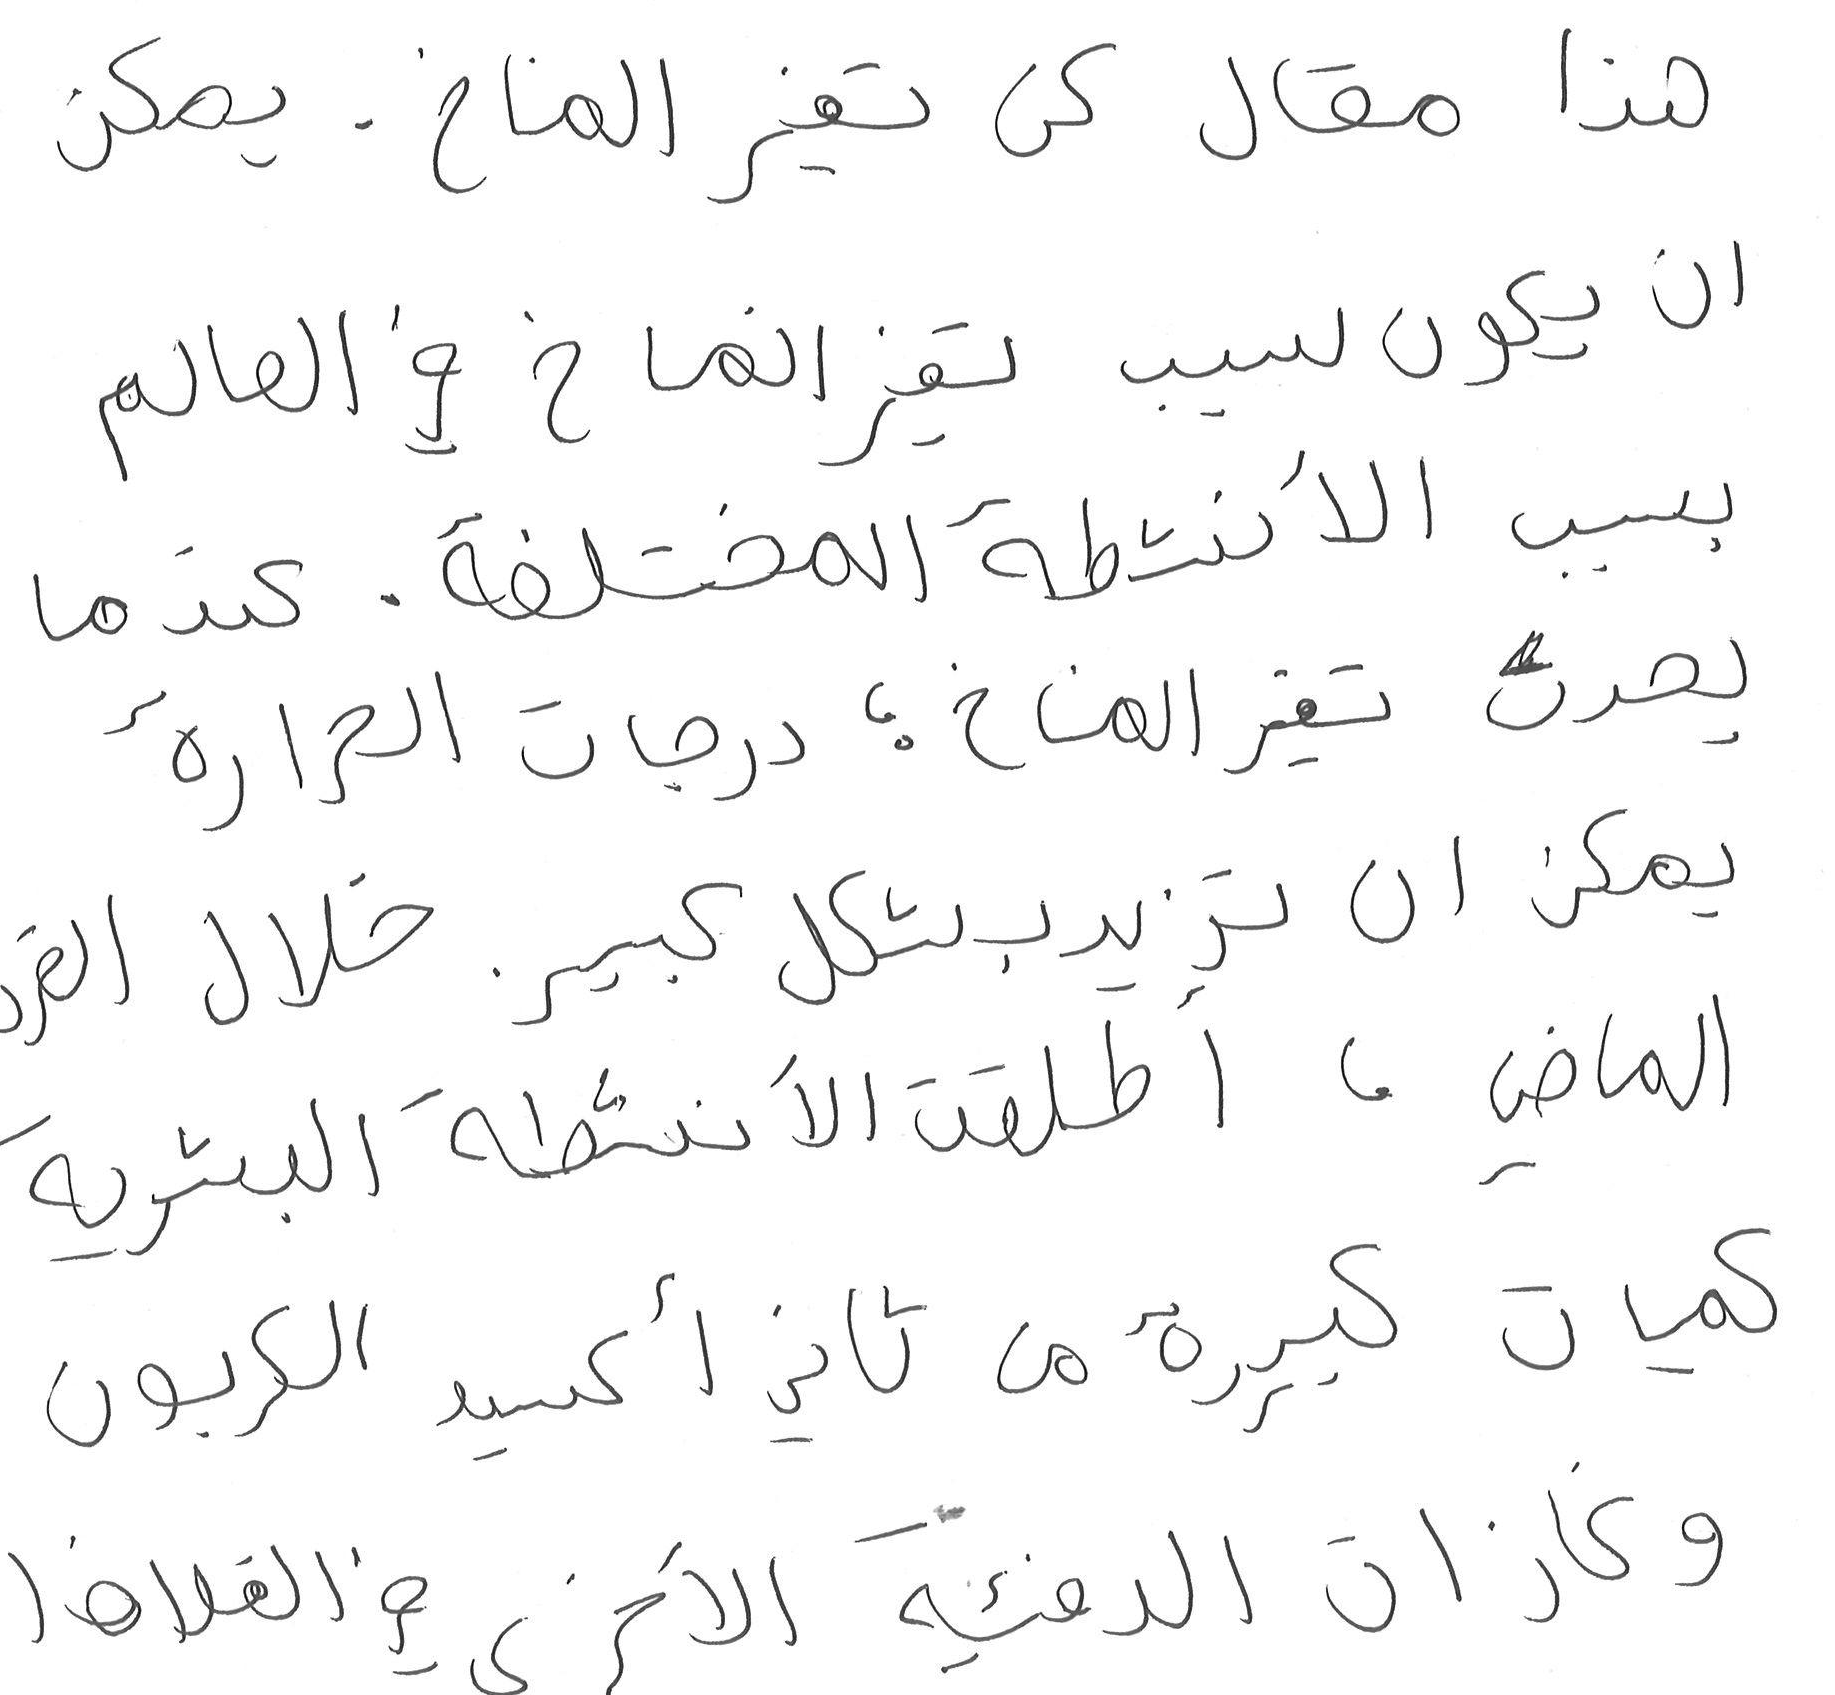 هذا مقال عن تغير المناخ. يمكن
ان يكون سبب تغير المناخ في العالم
بسبب الأنشطة المختلفة. عندما
يحدث تغير المناخ، درجات الحرارة
يمكن ان تزيد بشكل كبير. خلال القرن
الماضي، أطلقت الأنشطة البشرية
كميات كبيرة من ثاني أكسيد الكربون
وغازات الدفئية الأخرى في